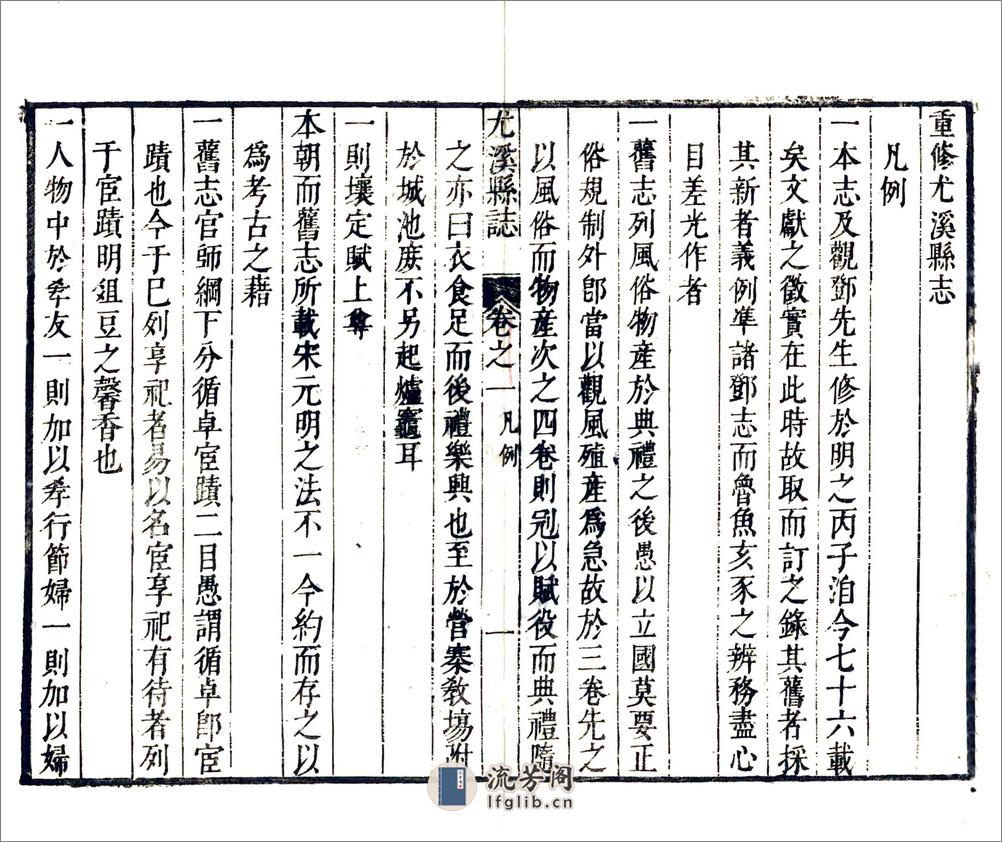 重修尤溪縣志
凡例
一本志及觀鄧先生修於明之丙子洎今七十六載
矣文獻之徵實在此時故取而訂之錄其舊者採
其新者義例準諸鄧志而魯魚亥豕之辨務盡心
目差光作者
一舊志列風俗物產於典禮之後愚以立國莫要正
俗規制外卽當以觀風殖產為急故於三卷先之
以風俗而物產次之四卷則冠以賦役而典禮隨
尤溪縣誌 卷之一 凡例 一
之亦曰衣食足而後禮樂興也至於營寨教場附
於城池庶不另起爐竈耳
一則壤定賦上尊
本朝而舊志所載宋元明之法不一今約而存之以
為考古之藉
一舊志官師綱下分循卓宦蹟二目愚謂循卓卽宦
蹟也今于已列享祀者易以名宦享祀有待者列
于宦蹟明俎豆之馨香也
一人物中於孝友一則加以孝行節婦一則加以婦
流芳阁
lfglib.cn